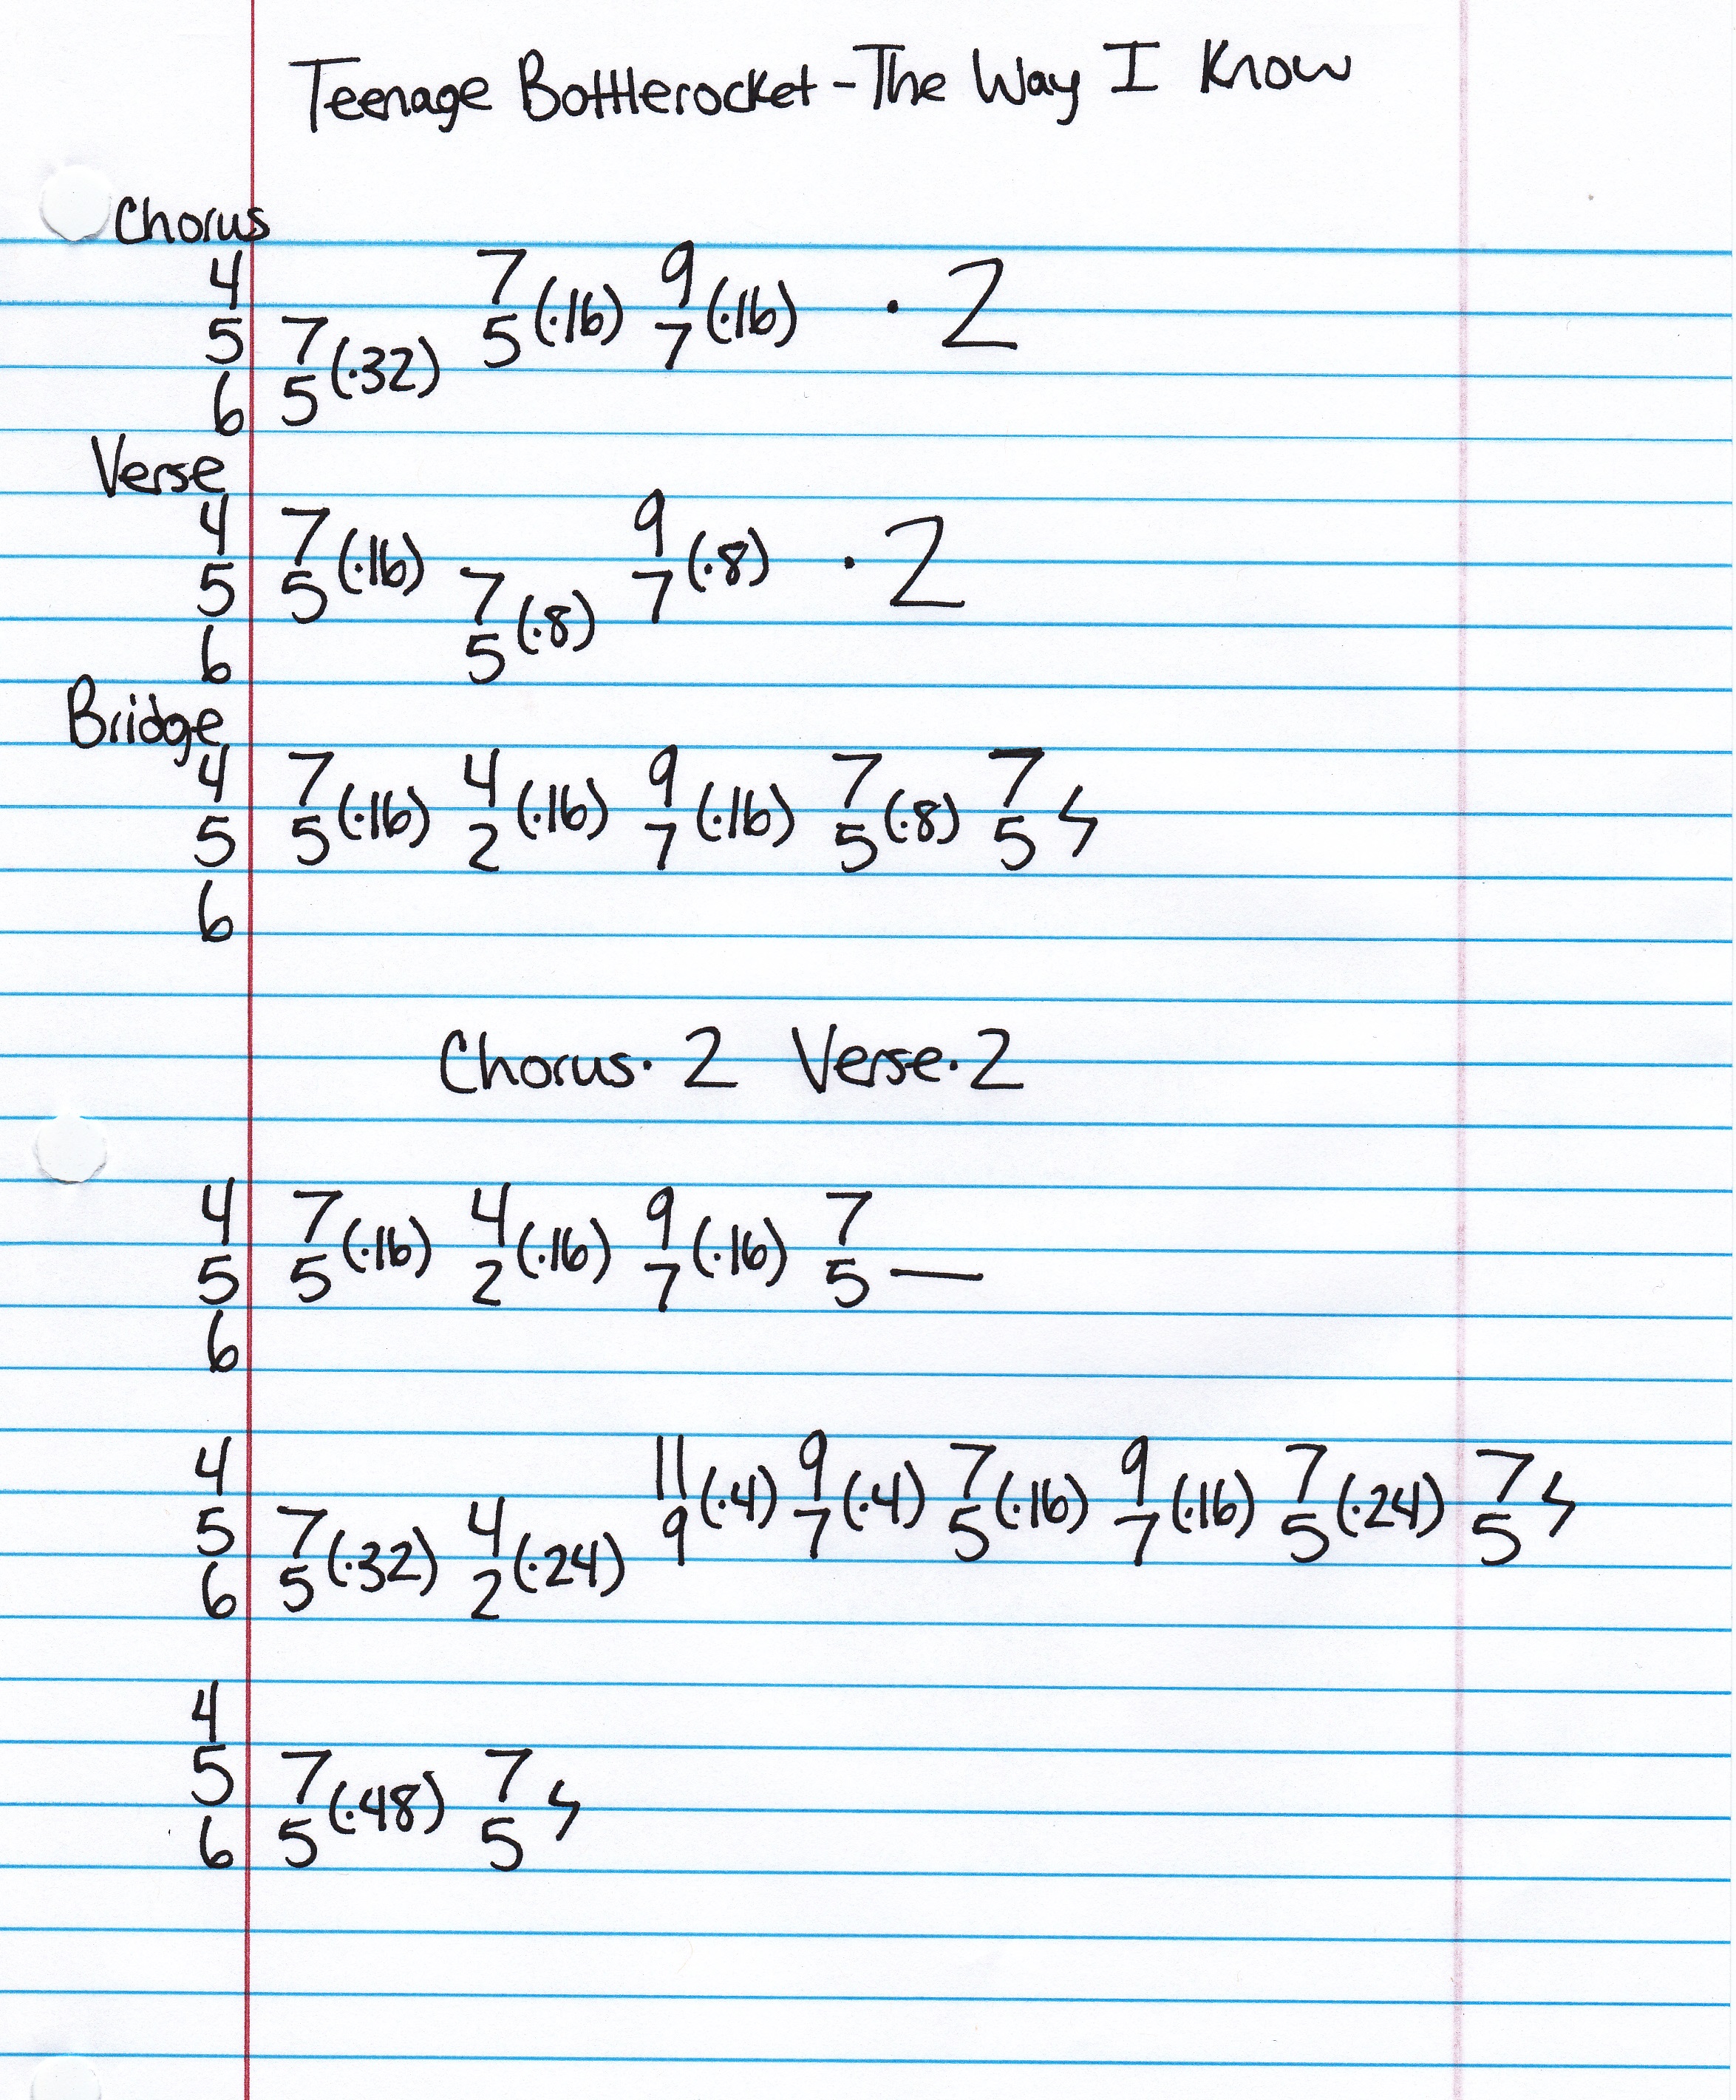 Teenage Bottlerocket - The Way I Know
Chorus
4 7 9
5 7 (·32) 5 (·16) 7 (·16) · 2
6 5
Verse
4 7 9
5 5 (·16) 7 (·8) 7 (·8) · 2
6 5
Bridge
4 7 4 9 7 7
5 5 (·16) 2 (·16) 7 (·16) 5 (·8) 5 ϟ
6
Chorus · 2 Verse · 2
4 7 4 9 7
5 5 (·16) 2 (·16) 7 (·16) 5 —
6
4 11 9 7 9 7 7
5 7 (·32) 4 (·24) 9 (·4) 7 (·4) 5 (·16) 7 (·16) 5 (·24) 5 ϟ
6 5 2
4
5 7 (·48) 7 ϟ
6 5 5